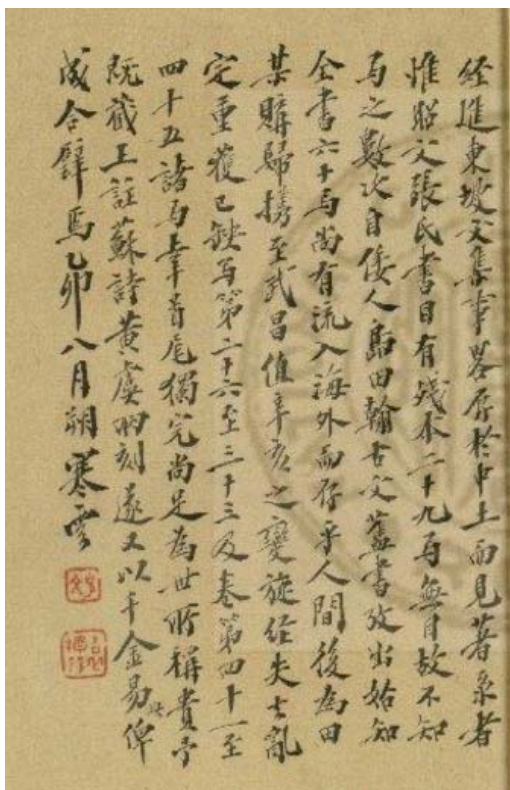 經進東坡文集事畧存於中土而見著录者
惟昭文張氏書目有殘本二十九卷無目故不知
卷之數次自倭人島田翰古文舊書攷出始知
全書六十卷尚有流入海外而存乎人間後為田
某購歸携至武昌值辛亥之變旋經失去亂
定重獲已缺卷第二十六至三十三及卷第四十一至
四十五諸卷幸首尾獨完尚足為世所稱貴予
既藏王註蘇詩黃虞兩刻遂又以千金易此俾
成合璧焉乙卯八月朔寒雲